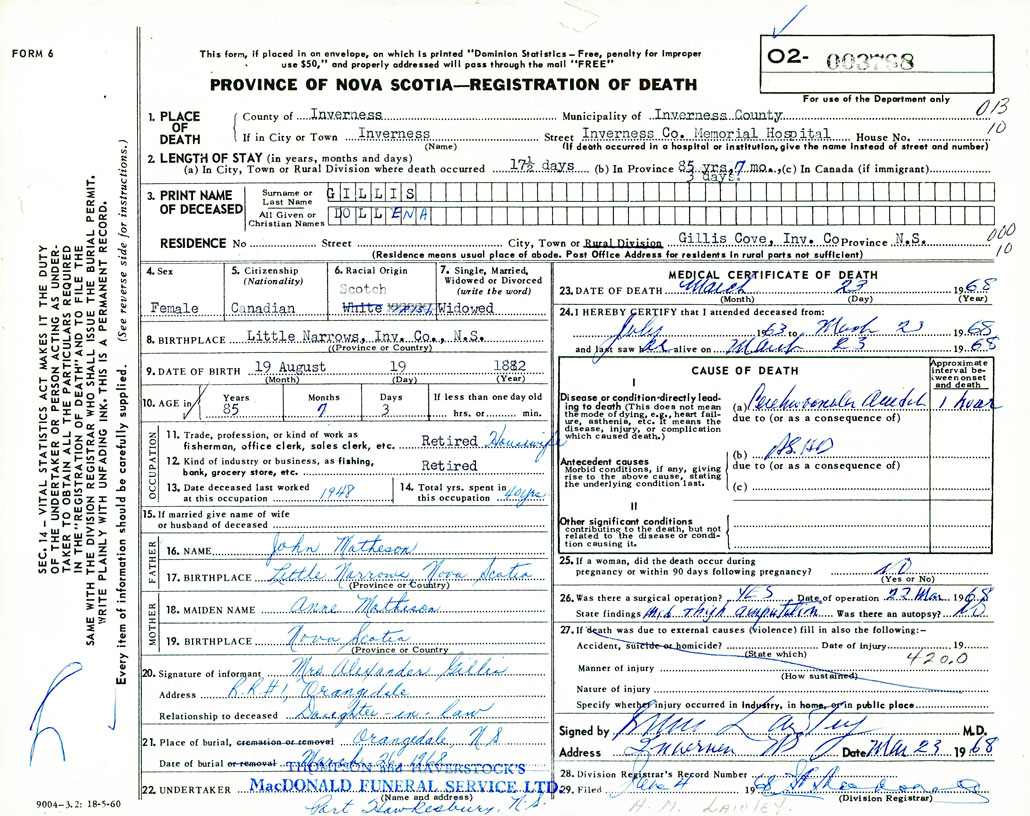 FORM 6
This form, if placed in an envelope, on which is printed "Dominion Statistics – Free, penalty for improper
use $50," and properly addressed will pass through the mail "FREE"
PROVINCE OF NOVA SCOTIA—REGISTRATION OF DEATH
O2- 003768
For use of the Department only
013
10
1. PLACE OF DEATH
County of Inverness Municipality of Inverness County
If in City or Town Inverness Street Inverness Co. Memorial Hospital House No.
(Name) (If death occurred in a hospital or institution, give the name instead of street and number)
2. LENGTH OF STAY (in years, months and days)
(a) In City, Town or Rural Division where death occurred 17½ days (b) In Province 85 yrs, 7 mo., (c) In Canada (if immigrant)
3 days.
3. PRINT NAME OF DECEASED
Surname or Last Name GILLIS
All Given or Christian Names DOLLENA
RESIDENCE No Street City, Town or Rural Division Gillis Cove, Inv. Co Province N.S.
(Residence means usual place of abode. Post Office Address for residents in rural parts not sufficient)
000
10
4. Sex
Female
5. Citizenship (Nationality)
Canadian
6. Racial Origin
Scotch
White
7. Single, Married, Widowed or Divorced (write the word)
Widowed
8. BIRTHPLACE Little Narrows, Inv. Co., N.S.
(Province or Country)
9. DATE OF BIRTH 19 August 19 1882
(Month) (Day) (Year)
10. AGE in Years Months Days If less than one day old
85 7 3 hrs. or min.
OCCUPATION
11. Trade, profession, or kind of work as fisherman, office clerk, sales clerk, etc. Retired Housewife
12. Kind of industry or business, as fishing, bank, grocery store, etc. Retired
13. Date deceased last worked at this occupation 1948
14. Total yrs. spent in this occupation 40 yrs
15. If married give name of wife or husband of deceased
FATHER
16. NAME John Matheson
17. BIRTHPLACE Little Narrows Nova Scotia
(Province or Country)
MOTHER
18. MAIDEN NAME Anne Matheson
19. BIRTHPLACE Nova Scotia
(Province or Country
20. Signature of informant Mrs Alexander Gillis
Address R.R#1, Orangedale
Relationship to deceased Daughter-in-law
21. Place of burial, cremation or removal Orangedale, N.S
Date of burial or removal March 26, 1968
THOMPSON and HAVERSTOCK'S
22. UNDERTAKER MacDONALD FUNERAL SERVICE LTD.
(Name and address)
Port Hawkesbury, N.S.
MEDICAL CERTIFICATE OF DEATH
23. DATE OF DEATH March 23 1968
(Month) (Day) (Year)
24. I HEREBY CERTIFY that I attended deceased from:
July 1963 to March 23 1968
and last saw her alive on March 23 1968
CAUSE OF DEATH
Approximate interval between onset and death
I
Disease or condition directly leading to death (This does not mean the mode of dying, e.g., heart failure, asthenia, etc. It means the disease, injury, or complication which caused death.)
(a) 1 hour
due to (or as a consequence of)
Antecedent causes
Morbid conditions, if any, giving rise to the above cause, stating the underlying condition last.
(b) ASHD
due to (or as a consequence of)
(c)
II
Other significant conditions contributing to the death, but not related to the disease or condition causing it.
25. If a woman, did the death occur during pregnancy or within 90 days following pregnancy? NO
(Yes or No)
26. Was there a surgical operation? YES Date of operation 22 Mar 1968
State findings mid thigh amputation Was there an autopsy? NO
27. If death was due to external causes (violence) fill in also the following:–
Accident, suicide or homicide? Date of injury 19
(State which) 420.0
Manner of injury
(How sustained)
Nature of injury
Specify whether injury occurred in industry, in home, or in public place
Signed by M.D.
Address Inverness NS Date Mar 23 1968
28. Division Registrar's Record Number
29. Filed 4 1968
(Division Registrar)
SEC. 14 – VITAL STATISTICS ACT MAKES IT THE DUTY
OF THE UNDERTAKER OR PERSON ACTING AS UNDERTAKER TO OBTAIN ALL THE PARTICULARS REQUIRED
IN THE "REGISTRATION OF DEATH" AND TO FILE THE
SAME WITH THE DIVISION REGISTRAR WHO SHALL ISSUE THE BURIAL PERMIT.
WRITE PLAINLY WITH UNFADING INK. THIS IS A PERMANENT RECORD.
Every item of information should be carefully supplied. (See reverse side for instructions.)
9004–3.2: 18-5-60
H. M. LAWLEY.